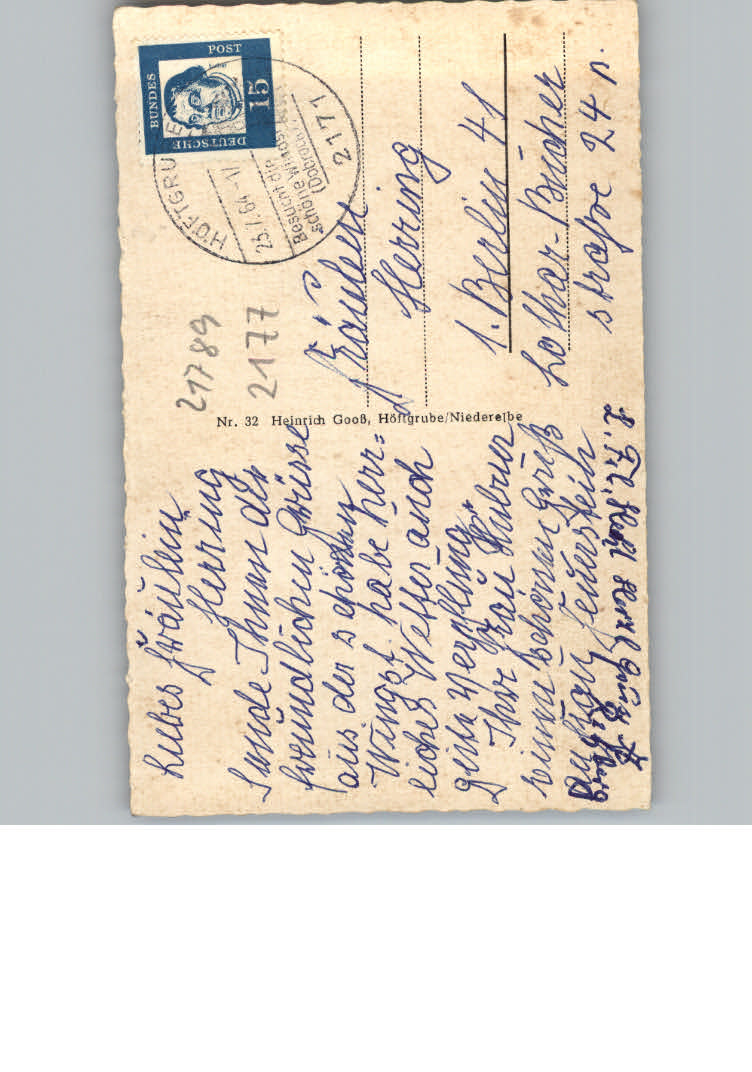 Liebes Fräulein
Herring
Sende Ihnen die
freundlichen Grüsse
aus der schönen
Wingst. habe herr=
liches Wetter auch
gute Verpflung
Ihre Frau
einen schönen Gruß
an Frau Feuerstein
Nr. 32 Heinrich Gooß, Höftgrube/Niederelbe
21789
2177
DEUTSCHE
BUNDES
POST
15
HÖFTGRUBE
23.7.64
Besucht die
schöne Wingst
2171
Fräulein
Herring
1. Berlin 41
Lothar-Bücher
straße 24 p.